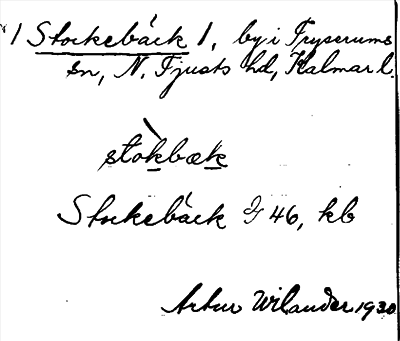 1 Stockebäck 1, by i Tryserums
sn, N. Tjusts hd, Kalmar l.
stòkbæk
Stockebäck G 46, kb
Artur Wilander 1930